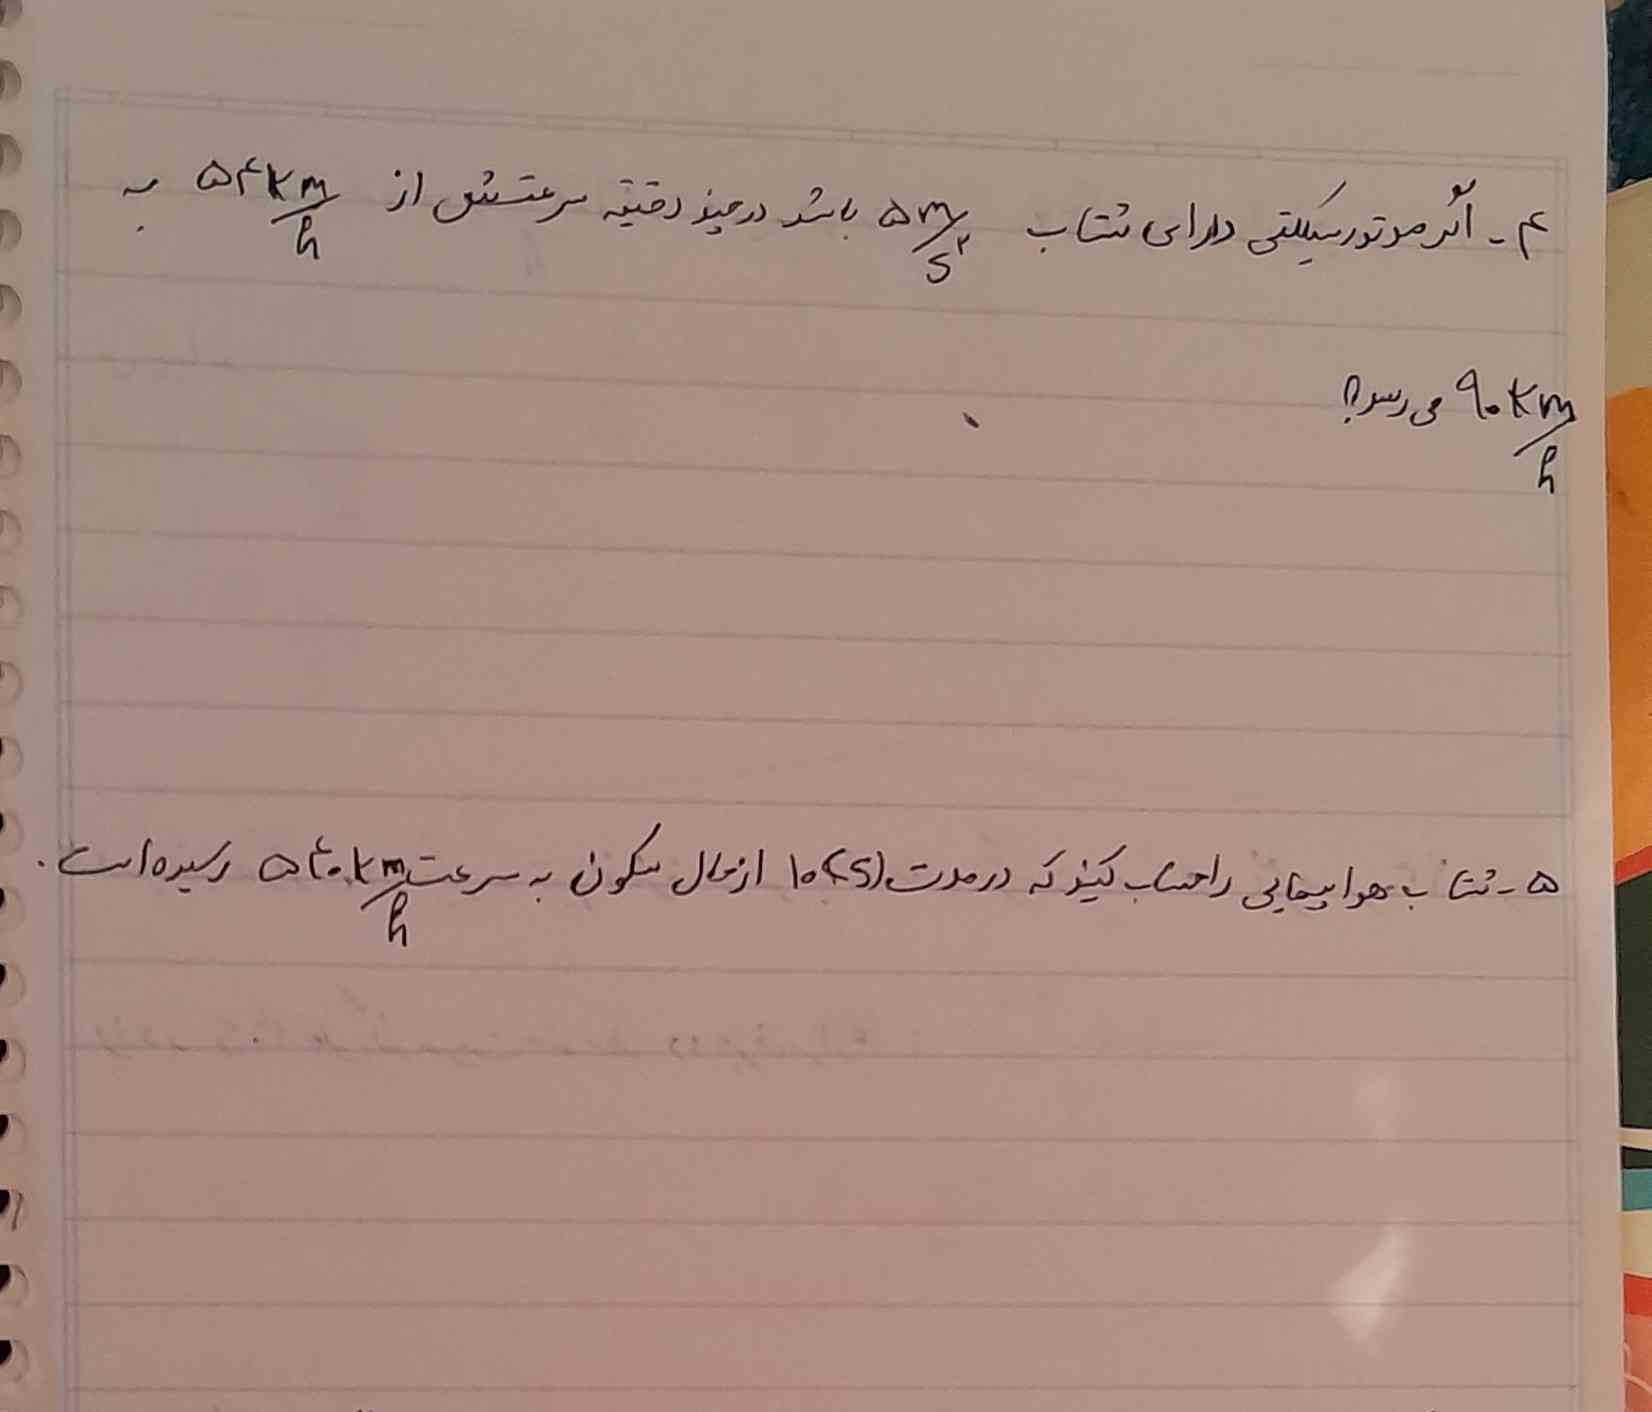 ۴- اگر موتورسیکلتی دارای شتاب ۵ m/s² باشد در چند دقیقه سرعتش از ۵۴ km/h به
۹۰ km/h می رسد؟
۵- شتاب هواپیمایی را حساب کنید که در مدت ۱۰(s) از حال سکون به سرعت ۵۴۰ km/h رسیده است.